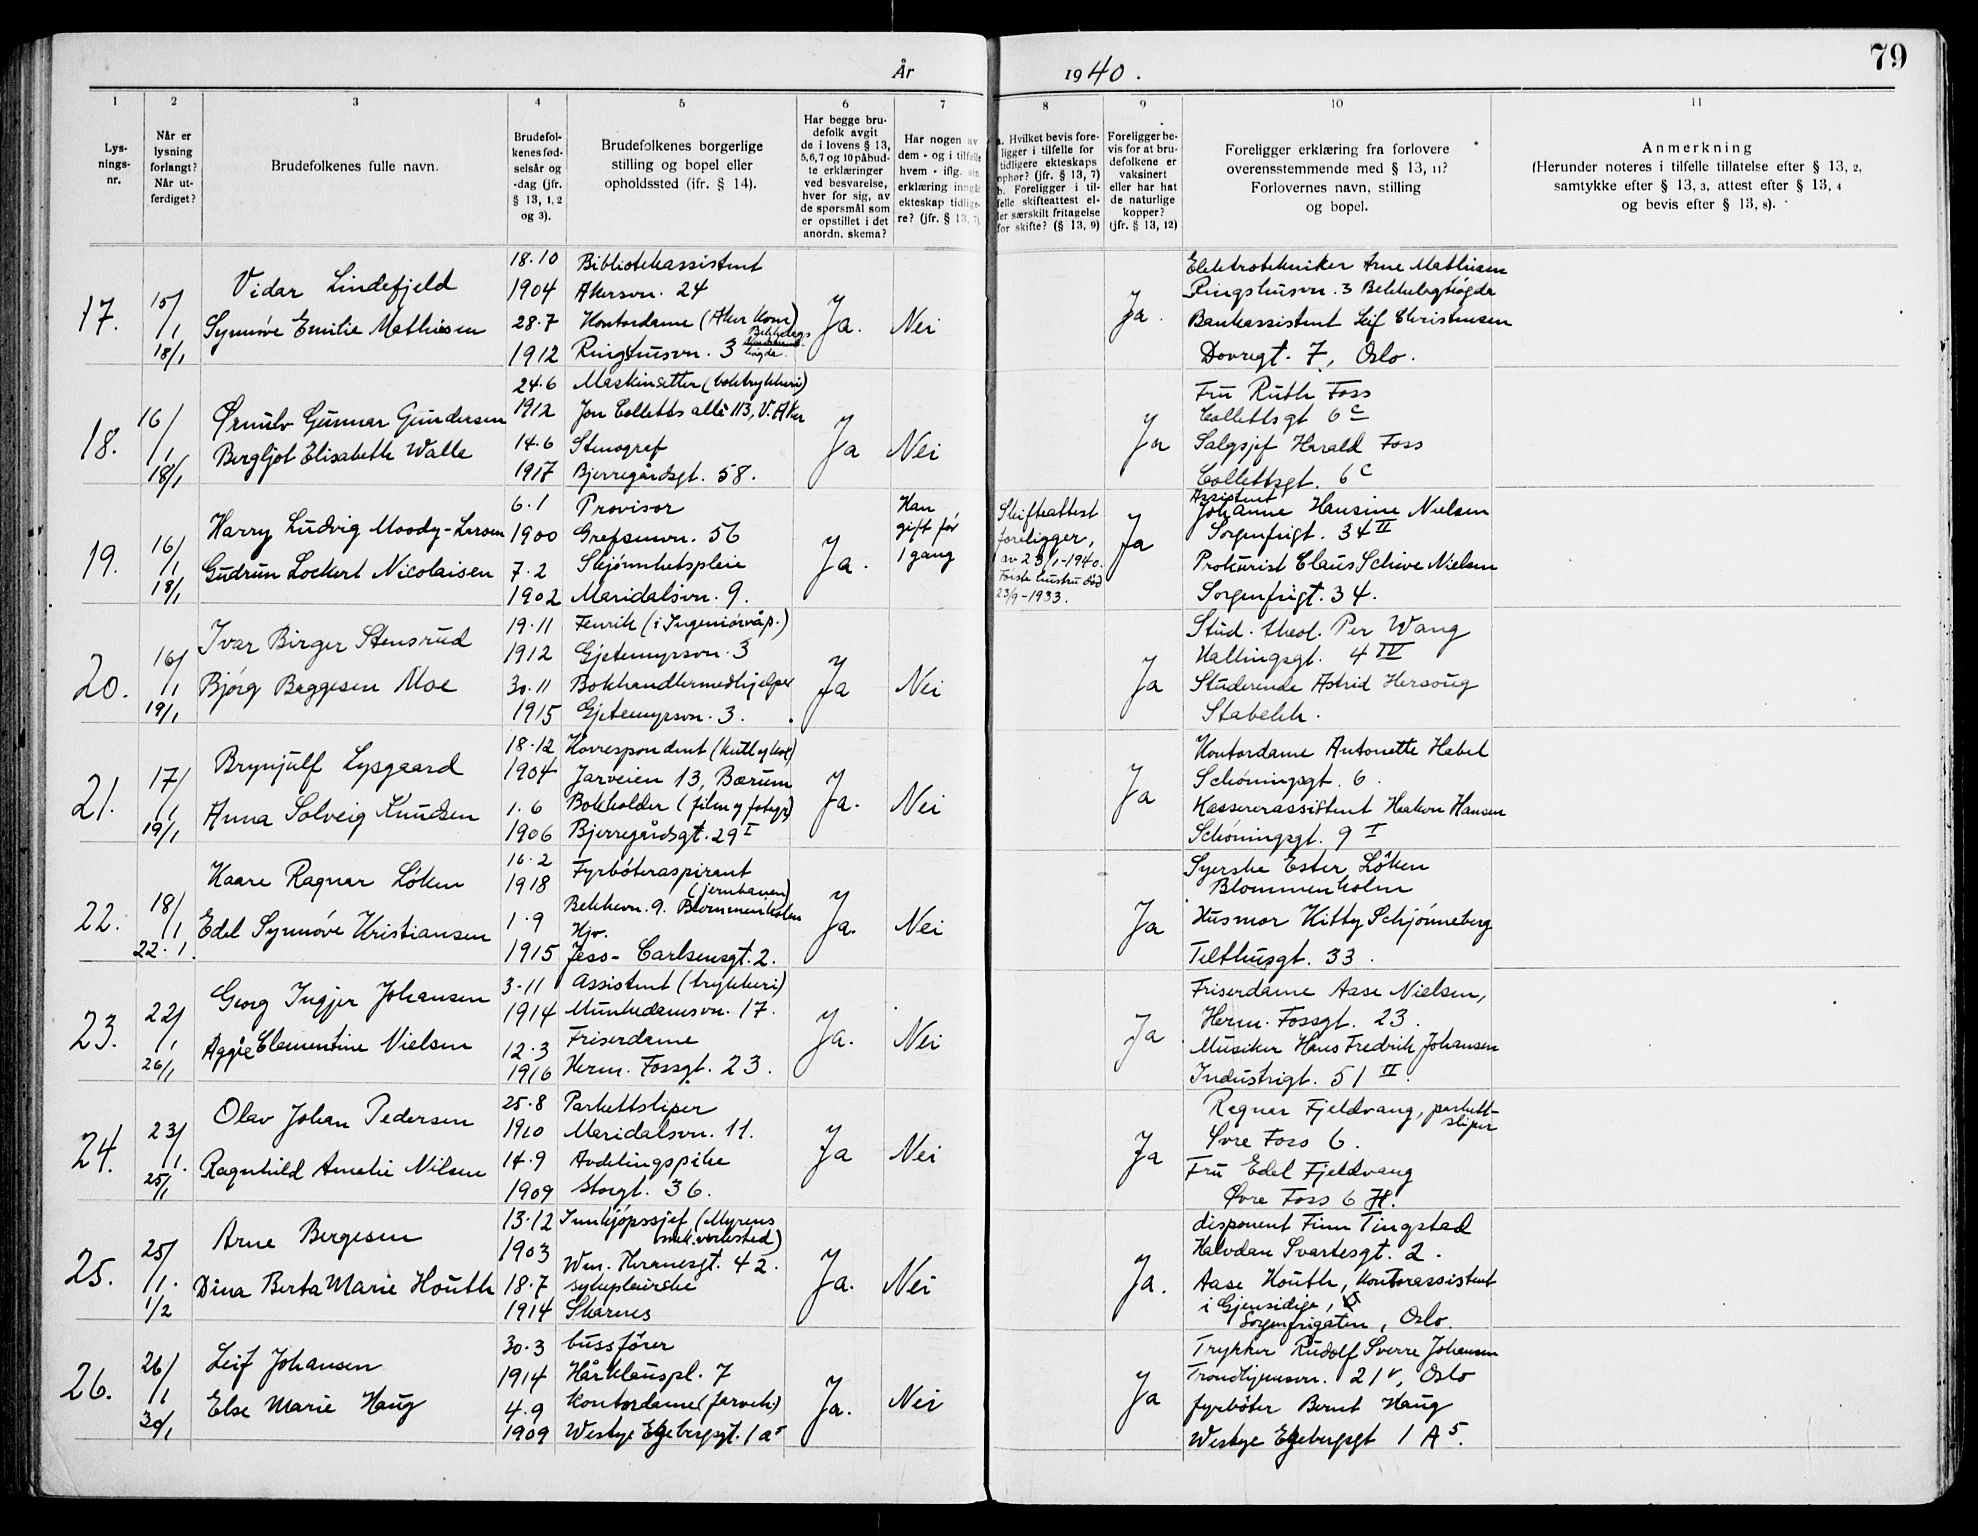 79
År 1940.
1
2
3
4
5
6
7
8
9
10
11
Lys-
nings-
nr.
Når er
lysning
forlangt?
Når ut-
ferdiget?
Brudefolkenes fulle navn.
Brudefol-
kenes fød-
selsår og
-dag (jfr.
§ 13, 1, 2
og 3).
Brudefolkenes borgerlige
stilling og bopel eller
opholdssted (ifr. § 14).
Har begge bru-
defolk avgit
de i lovens § 13,
5,6,7 og 10 påbud-
te erklæringer
ved besvarelse,
hver for sig, av
de spørsmål som
er opstillet i det
anordn. skema?
Har nogen av
dem - og i tilfelle
hvem - iflg. sin
erklæring inngått
ekteskap tidlige-
re? (jfr. § 13, 7).
a. Hvilket bevis fore-
ligger i tilfelle for
tidligere ekteskaps
ophør? (jfr. § 13, 7)
b. Foreligger i til-
felle skifteattest el-
ler særskilt fritagelse
for skifte? (§ 13, 9)
Foreligger be-
vis for at bru-
defolkene er
vaksinert
eller har hat
de naturlige
kopper?
(jfr. § 13, 12)
Foreligger erklæring fra forlovere
overensstemmende med § 13, 11?
Forlovernes navn, stilling
og bopel.
Anmerkning
(Herunder noteres i tilfelle tillatelse efter § 13, 2,
samtykke efter § 13, 3, attest efter § 13, 4
og bevis efter § 13, 8).
17.
15/1
18/1
Vidar Lindefjeld
Synnøve Emilie Mathisen
18.10
1904
28.7
1912
Bibliotekassistent
Akersvn. 24
Kontordame (Aker kom)
Ringshusvn. 3 Bekkelags-
høgda.
Ja.
Nei
Ja.
Elektrotekniker Arne Mathisen
Ringshusvn. 3 Bekkelagshøgda
Bankassistent Leif Christensen
Dovregt. 7, Oslo.
18.
16/1
18/1
Ørnulv Gunnar Gundersen
Bergljot Elisabeth Walle
24.6
1912
14.6
1917
Maskinsetter (boktrykkeri)
Jon Colletts allé 113, V. Aker
Stenograf
Bjerregårdsgt. 58.
Ja
Nei
Ja
Fru Ruth Foss
Collettsgt 6c
Salgsjef Harald Foss
Collettsgt. 6c
19.
16/1
18/1
Harry Ludvig Moody-Larsen
Gudrun Lockert Nicolaisen
6.1
1900
7.2
1902
Provisor
Grefsenvn. 56
Skjønnhetspleie
Maridalsvn. 9.
Ja.
Han
gift før
1 gang
Skifteattest
foreligger,
av 23/1-1940.
Første hustru død
23/9-1933.
Ja
Assistent
Johanne Hansine Nielsen
Sorgenfrigt. 34 II
Prokurist Claus Schive Nielsen
Sorgenfrigt. 34.
20.
16/1
19/1
Ivar Birger Stensrud
Bjørg Baggesen Moe
19.11
1912
30.11
1915
Fenrik (i Ingeniørvåp.)
Gjetemyrsvn. 3
Bokhandlermedhjelper
Gjetemyrsvn. 3.
Ja
Nei
Ja
Stud. theol. Per Wang
Hallingsgt. 4 IV
Studerende Astrid Hersoug
Stabekk.
21.
17/1
19/1
Brynjulf Lysgaard
Anna Solveig Knudsen
18.12
1904
1.6
1906
Korrespondent (kull og koks)
Jarveien 13, Bærum
Bokholder (film og fotogr)
Bjerregårdsgt. 29 I
Ja.
Nei
Ja
Kontordame Antonette Habel
Schøningsgt. 6.
Kassererassistent Haakon Hansen
Schøningsgt. 9 I
22.
18/1
22.1.
Kaare Ragnar Løken
Edel Synnøve Kristiansen
16.2
1918
1.9
1915
Fyrbøteraspirant
(jernbanen)
Bekkevn. 9. Blommenholm
Hjv.
Jess-Carlsensgt. 2.
Ja.
Nei
Ja
Syerske Ester Løken
Blommenholm
Husmor Kitty Schjønneberg
Telthusgt. 33.
23.
22/1
26/1
Georg Ingjer Johansen
Aggie Clementine Nielsen
3-11
1914
12.3
1916
Assistent (trykkeri)
Munkedamsvn. 17.
Friserdame
Herm. Fossgt. 23.
Ja.
Nei
Ja
Friserdame Aase Nielsen,
Herm. Fossgt. 23.
Musiker Hans Fredrik Johansen
Industrigt. 51 II.
24.
23/1.
25/1
Olav Johan Pedersen
Ragnhild Amalie Nilsen
25.8
1910
14.9
1909
Parkettsliper
Maridalsvn. 11.
Avdelingspike
Storgt. 36.
Ja
Nei
Ja
Ragnar Fjeldvang, parkett-
sliper
Øvre Foss 6.
Fru Edel Fjeldvang
Øvre Foss 6 H.
25.
25/1.
1/2
Arne Bergesen
Dina Berta Marie Houth
13.12
1903
18.7
1914
Innkjøpssjef (Myrens
mek. verksted)
Wm. Thranesgt. 42.
sykepleierske
Skarnes
Ja.
Nei
Ja.
disponent Finn Tingstad
Halvdan Svartesgt. 2.
Aase Houth, kontorassistent
i Gjensidige,
Sorgenfrigaten, Oslo.
26.
26/1
30/1
Leif Johansen
Else Marie Haug
30.3
1914
4.9
1909
bussfører
Hårklauspl. 7
Kontordame (farveh.)
Westye Egebergsgt. 1 a5
Ja.
Nei
Ja
Trykker Rudolf Sverre Johansen
Trondhjemsvn. 21 V, Oslo
fyrbøter Bernt Haug
Westye Egebergsgt 1 A 5.